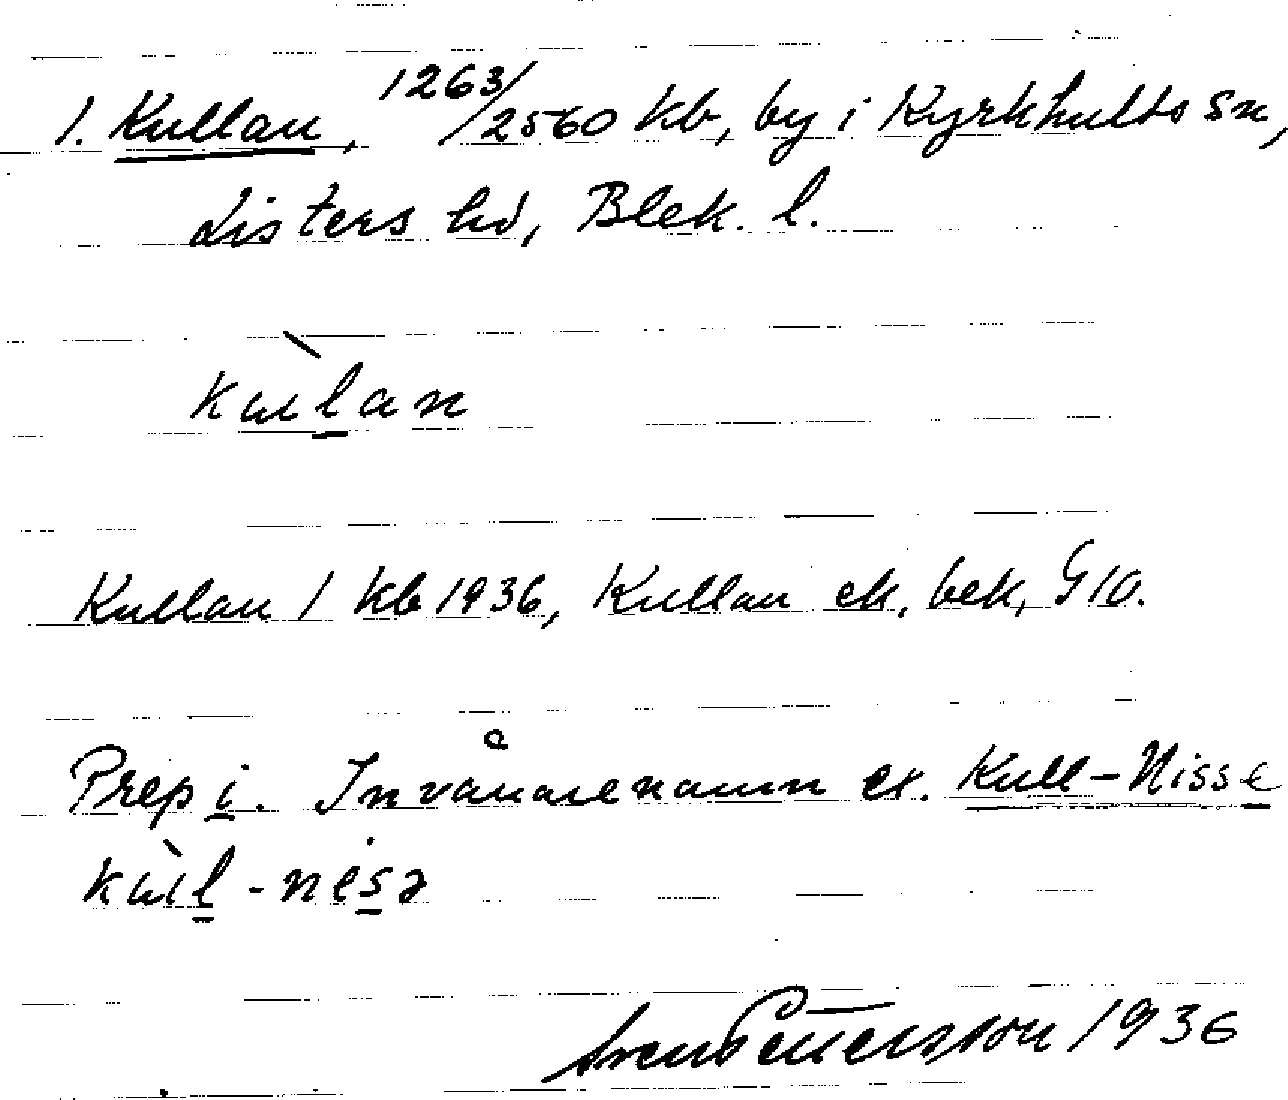 1. Kullan, 1263/2560 kb, by i Kyrkhults sn,
Listers hd, Blek. l.
Kullan 1 kb 1936, Kullan ek. bek, G10.
Prep i. Invånarenamn ex. Kull-Nisse
Sven Pettersson 1936